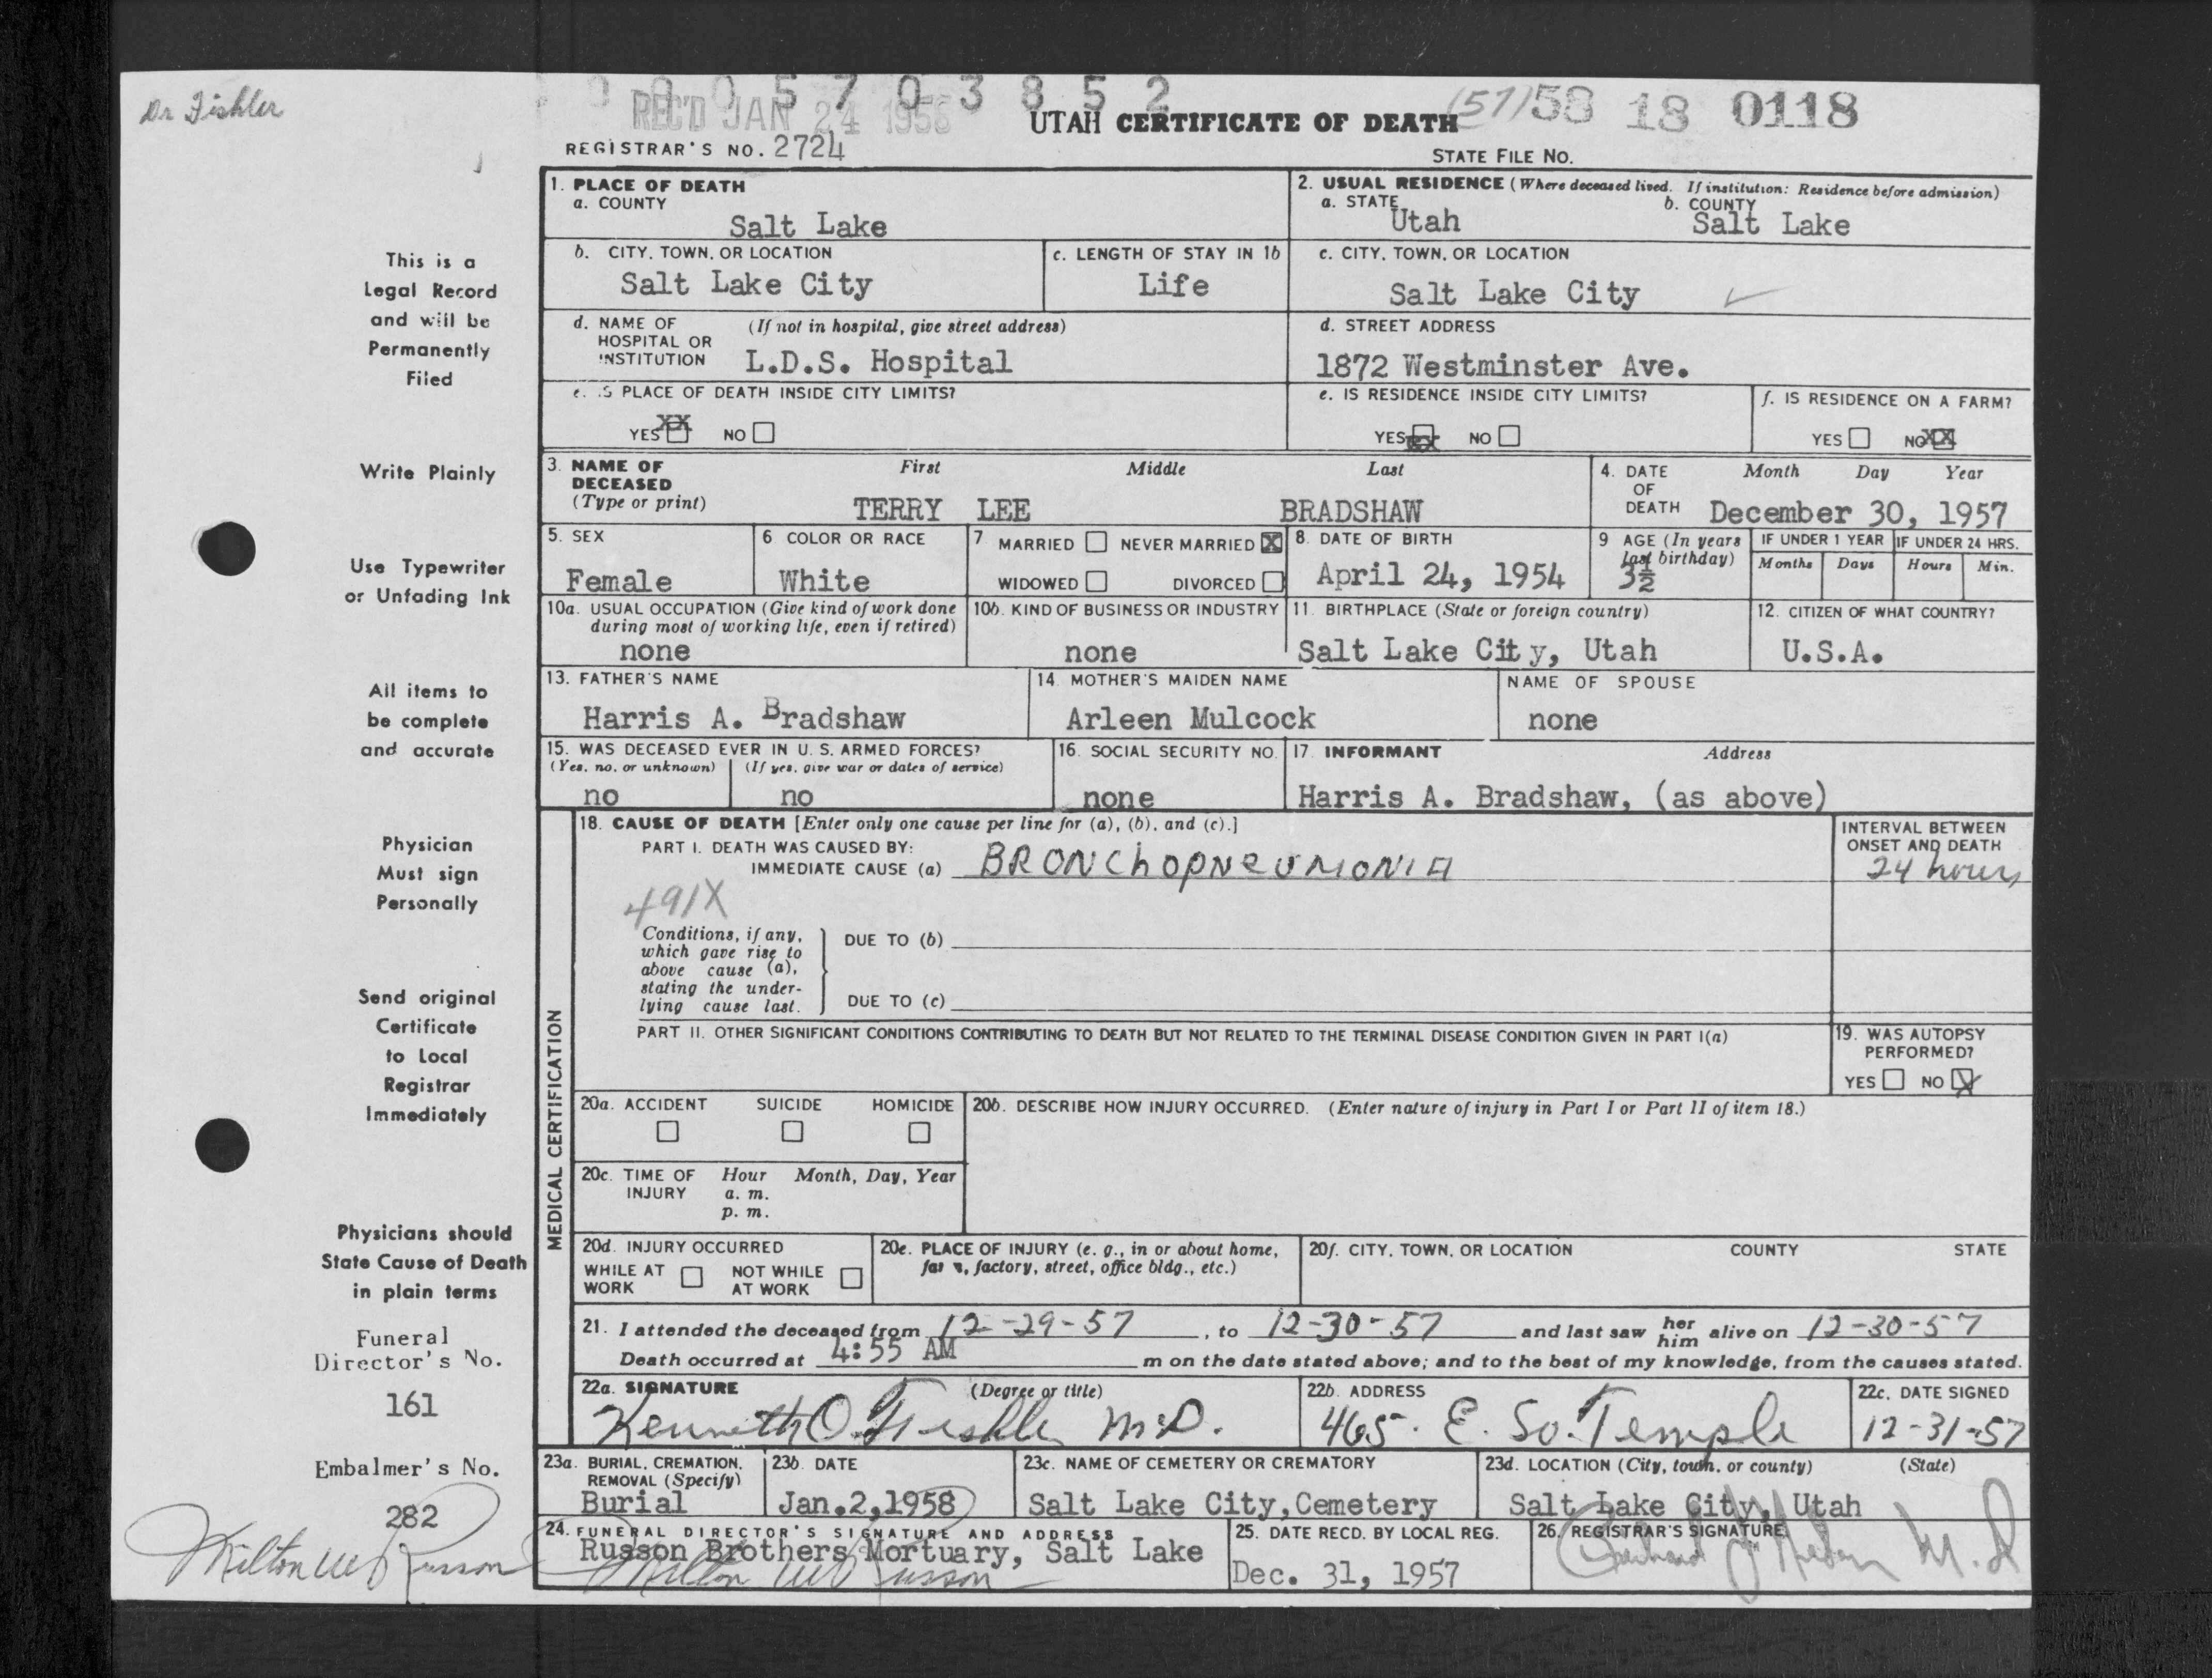 Dr Fishler
0 0 0 5 7 0 3 8 5 2
REC'D JAN 24 1958
UTAH CERTIFICATE OF DEATH
(57) 58 18 0118
REGISTRAR'S NO. 2724
STATE FILE NO.
1. PLACE OF DEATH
a. COUNTY
Salt Lake
2. USUAL RESIDENCE (Where deceased lived. If institution: Residence before admission)
a. STATE b. COUNTY
Utah Salt Lake
b. CITY, TOWN, OR LOCATION
Salt Lake City
c. LENGTH OF STAY IN 1b
Life
c. CITY, TOWN, OR LOCATION
Salt Lake City
d. NAME OF (If not in hospital, give street address)
HOSPITAL OR
INSTITUTION L.D.S. Hospital
d. STREET ADDRESS
1872 Westminster Ave.
e. IS PLACE OF DEATH INSIDE CITY LIMITS?
YES XX NO
e. IS RESIDENCE INSIDE CITY LIMITS?
YES XX NO
f. IS RESIDENCE ON A FARM?
YES NO XX
3. NAME OF DECEASED (Type or print)
First Middle Last
TERRY LEE BRADSHAW
4. DATE OF DEATH Month Day Year
December 30, 1957
5. SEX
Female
6 COLOR OR RACE
White
7 MARRIED NEVER MARRIED X
WIDOWED DIVORCED
8. DATE OF BIRTH
April 24, 1954
9 AGE (In years last birthday)
3½
IF UNDER 1 YEAR IF UNDER 24 HRS.
Months Days Hours Min.
10a. USUAL OCCUPATION (Give kind of work done
during most of working life, even if retired)
none
10b. KIND OF BUSINESS OR INDUSTRY
none
11. BIRTHPLACE (State or foreign country)
Salt Lake City, Utah
12. CITIZEN OF WHAT COUNTRY?
U.S.A.
13. FATHER'S NAME
Harris A. Bradshaw
14. MOTHER'S MAIDEN NAME
Arleen Mulcock
NAME OF SPOUSE
none
15. WAS DECEASED EVER IN U. S. ARMED FORCES?
(Yes, no, or unknown) (If yes, give war or dates of service)
no no
16. SOCIAL SECURITY NO.
none
17. INFORMANT Address
Harris A. Bradshaw, (as above)
MEDICAL CERTIFICATION
18. CAUSE OF DEATH [Enter only one cause per line for (a), (b), and (c).]
PART I. DEATH WAS CAUSED BY:
IMMEDIATE CAUSE (a) BRONChOPNeUMONIA
INTERVAL BETWEEN
ONSET AND DEATH
24 hours
491X
Conditions, if any,
which gave rise to
above cause (a),
stating the under-
lying cause last.
DUE TO (b)
DUE TO (c)
PART II. OTHER SIGNIFICANT CONDITIONS CONTRIBUTING TO DEATH BUT NOT RELATED TO THE TERMINAL DISEASE CONDITION GIVEN IN PART I(a)
19. WAS AUTOPSY
PERFORMED?
YES NO X
20a. ACCIDENT SUICIDE HOMICIDE
20b. DESCRIBE HOW INJURY OCCURRED. (Enter nature of injury in Part I or Part II of item 18.)
20c. TIME OF INJURY Hour Month, Day, Year
a. m.
p. m.
20d. INJURY OCCURRED
WHILE AT WORK NOT WHILE AT WORK
20e. PLACE OF INJURY (e. g., in or about home,
farm, factory, street, office bldg., etc.)
20f. CITY, TOWN, OR LOCATION COUNTY STATE
21. I attended the deceased from 12-29-57, to 12-30-57 and last saw her him alive on 12-30-57
Death occurred at 4:55 AM m on the date stated above; and to the best of my knowledge, from the causes stated.
22a. SIGNATURE (Degree or title)
Kenneth O. Fishler M.D.
22b. ADDRESS
465. E. So. Temple
22c. DATE SIGNED
12-31-57
23a. BURIAL, CREMATION,
REMOVAL (Specify)
Burial
23b. DATE
Jan.2,1958
23c. NAME OF CEMETERY OR CREMATORY
Salt Lake City,Cemetery
23d. LOCATION (City, town, or county) (State)
Salt Lake City, Utah
24. FUNERAL DIRECTOR'S SIGNATURE AND ADDRESS
Russon Brothers Mortuary, Salt Lake
Milton W Russon
25. DATE RECD. BY LOCAL REG.
Dec. 31, 1957
26. REGISTRAR'S SIGNATURE
M.D
This is a
Legal Record
and will be
Permanently
Filed
Write Plainly
Use Typewriter
or Unfading Ink
All items to
be complete
and accurate
Physician
Must sign
Personally
Send original
Certificate
to Local
Registrar
Immediately
Physicians should
State Cause of Death
in plain terms
Funeral
Director's No.
161
Embalmer's No.
282
Milton W Russon